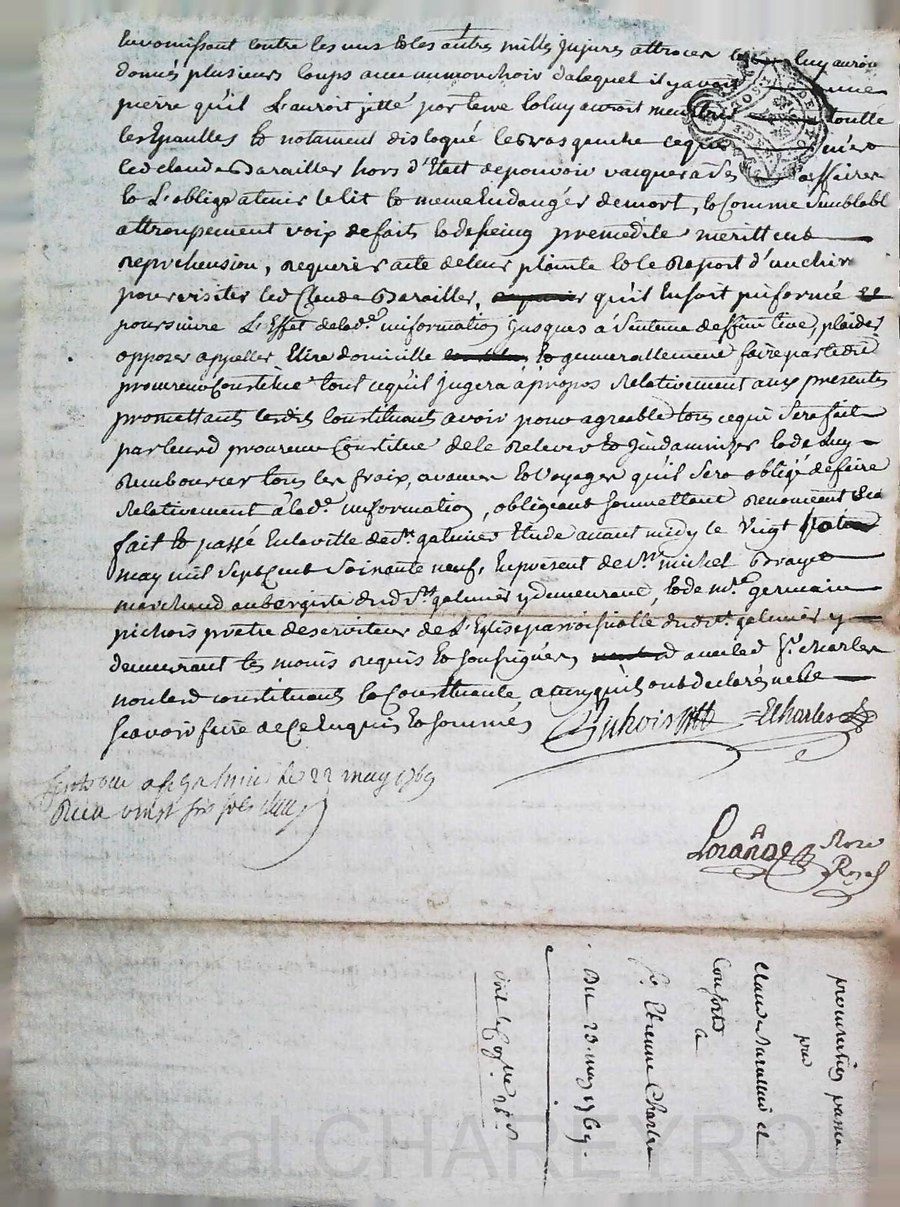 En vomissant contre les uns et les autres milles jnjures attroces luy auroit
donnés plusieurs coups avec un mouchoir dalequel il y avoit une
pierre qu'il L'auroit jetté par terre et luy auroit toutte
les Epaulles et notament disloqué le bras gauche ce qui
led claude Barailler hors d'Etat de pouvoir vaquer a Ses affaires
et L'oblige a tenir le lit et meme En dangér de mort, et Comme Semblabl
attroupement voix de fait et de feing premedite merittent
reprehension, requerir acte de leur plainte et le Raport d'un chir
pour visiter led Claude Barailler, qu'il En soit jnformé et
poursuivre L'Effet de lad.e jnformation jusques á Sentence deffinitive, plaider
opposer appeller Elire domicille et generallement faire par ledit
procureur Constitué tout ce qu'il jugera à propos Relativement aux presentes
promettants lesdits Constituants avoir pour agreable tout ce qui Sera fait
par leurd procureur Constitué de le Relever et jndamnizer et de Luy
Rembourcer tous les fraix, avances et Voyages qu'il Sera obligé de faire
Relativement à lad.e jnformation, obligeant Soumettant renonceant &a
fait et passé En la ville de St. galmier Etude avant midy le Vingt
may mil Sept Cent Soixante neuf, En present de Sr. michel
marchand aubergiste dud St. galmier y demeurant, et de Mr. germain
pichois prêtre deserviteur de L'Eglise paroissialle dud St. galmier y
demeurant temoins requis et Soussignés avec led Sr. charles
non led constituant et Constituante, a ceux qu'ils ont declarés ne le
Scavoir faire de Ce Enquis et Sommés
=ECharles
a St Galmier le 22 may 1769
Reçu vingt six sols
Rose
Royet
procuration passée
par
claude Barallier et
Consorts
a
Sr. Etienne Charles
Du 20. may 1769.